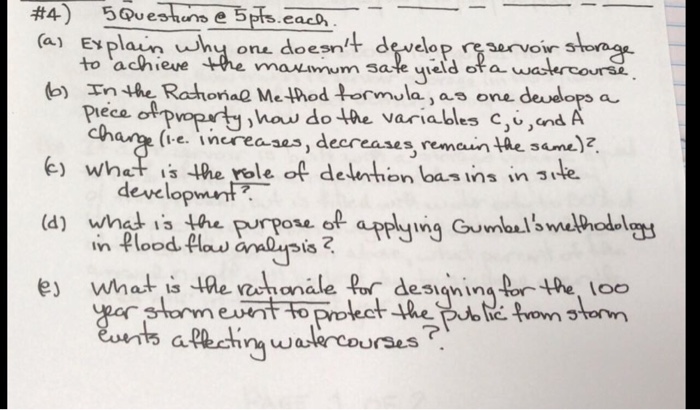 #4) 5 Questions @ 5 pts. each.
(a) Explain why one doesn't develop reservoir storage
to achieve the maximum safe yield of a watercourse.
(b) In the Rational Method formula, as one develops a
piece of property, how do the variables C, i, and A
change (i.e. increases, decreases, remain the same)?
(c) what is the role of detention basins in site
development?
(d) what is the purpose of applying Gumbel's methodology
in flood flow analysis?
(e) what is the rationale for designing for the 100
year storm event to protect the public from storm
events affecting watercourses?